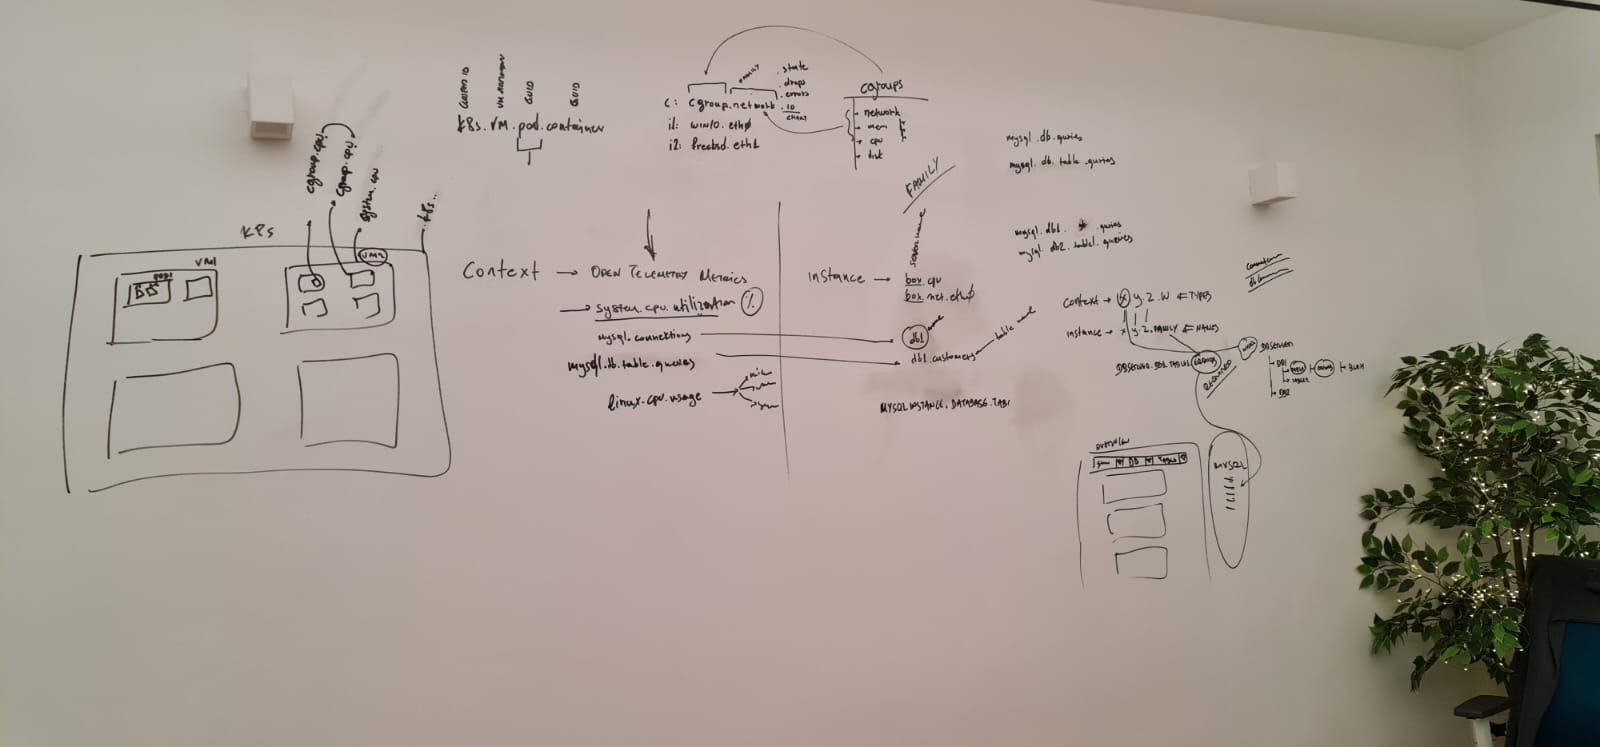 K8s
VM1
POD1
VM2
cgroup.cpu
cgroup.cpu
system.cpu
K8s...
VM HOSTNAME
GUID
GUID
K8s.VM.pod.container
FAMILY
C: cgroup.network.ID
CHART
i1: win10.eth0
i2: freebsd.eth1
.state
.drops
.errors
cgroups
network
mem
cpu
disk
mysql.db.queries
mysql.db.table.queries
FAMILY
mysql.db1. .queries
mysql.db2.table1.queries
Context → OPEN TELEMETRY METRICS
→ system.cpu.utilization %
mysql.connections
mysql.db.table.queries
linux.cpu.usage →
instance →
server name
box.cpu
box.net.eth0
db1
name
db1.customers
table name
MYSQL INSTANCE.DATABASE.TABL
Context → x y.z.w ← TYPES
instance → x y.z.FAMILY ← NAMES
DBSERVER
DB1
TABLE2
DB2
OVERVIEW
DB
MYSQL